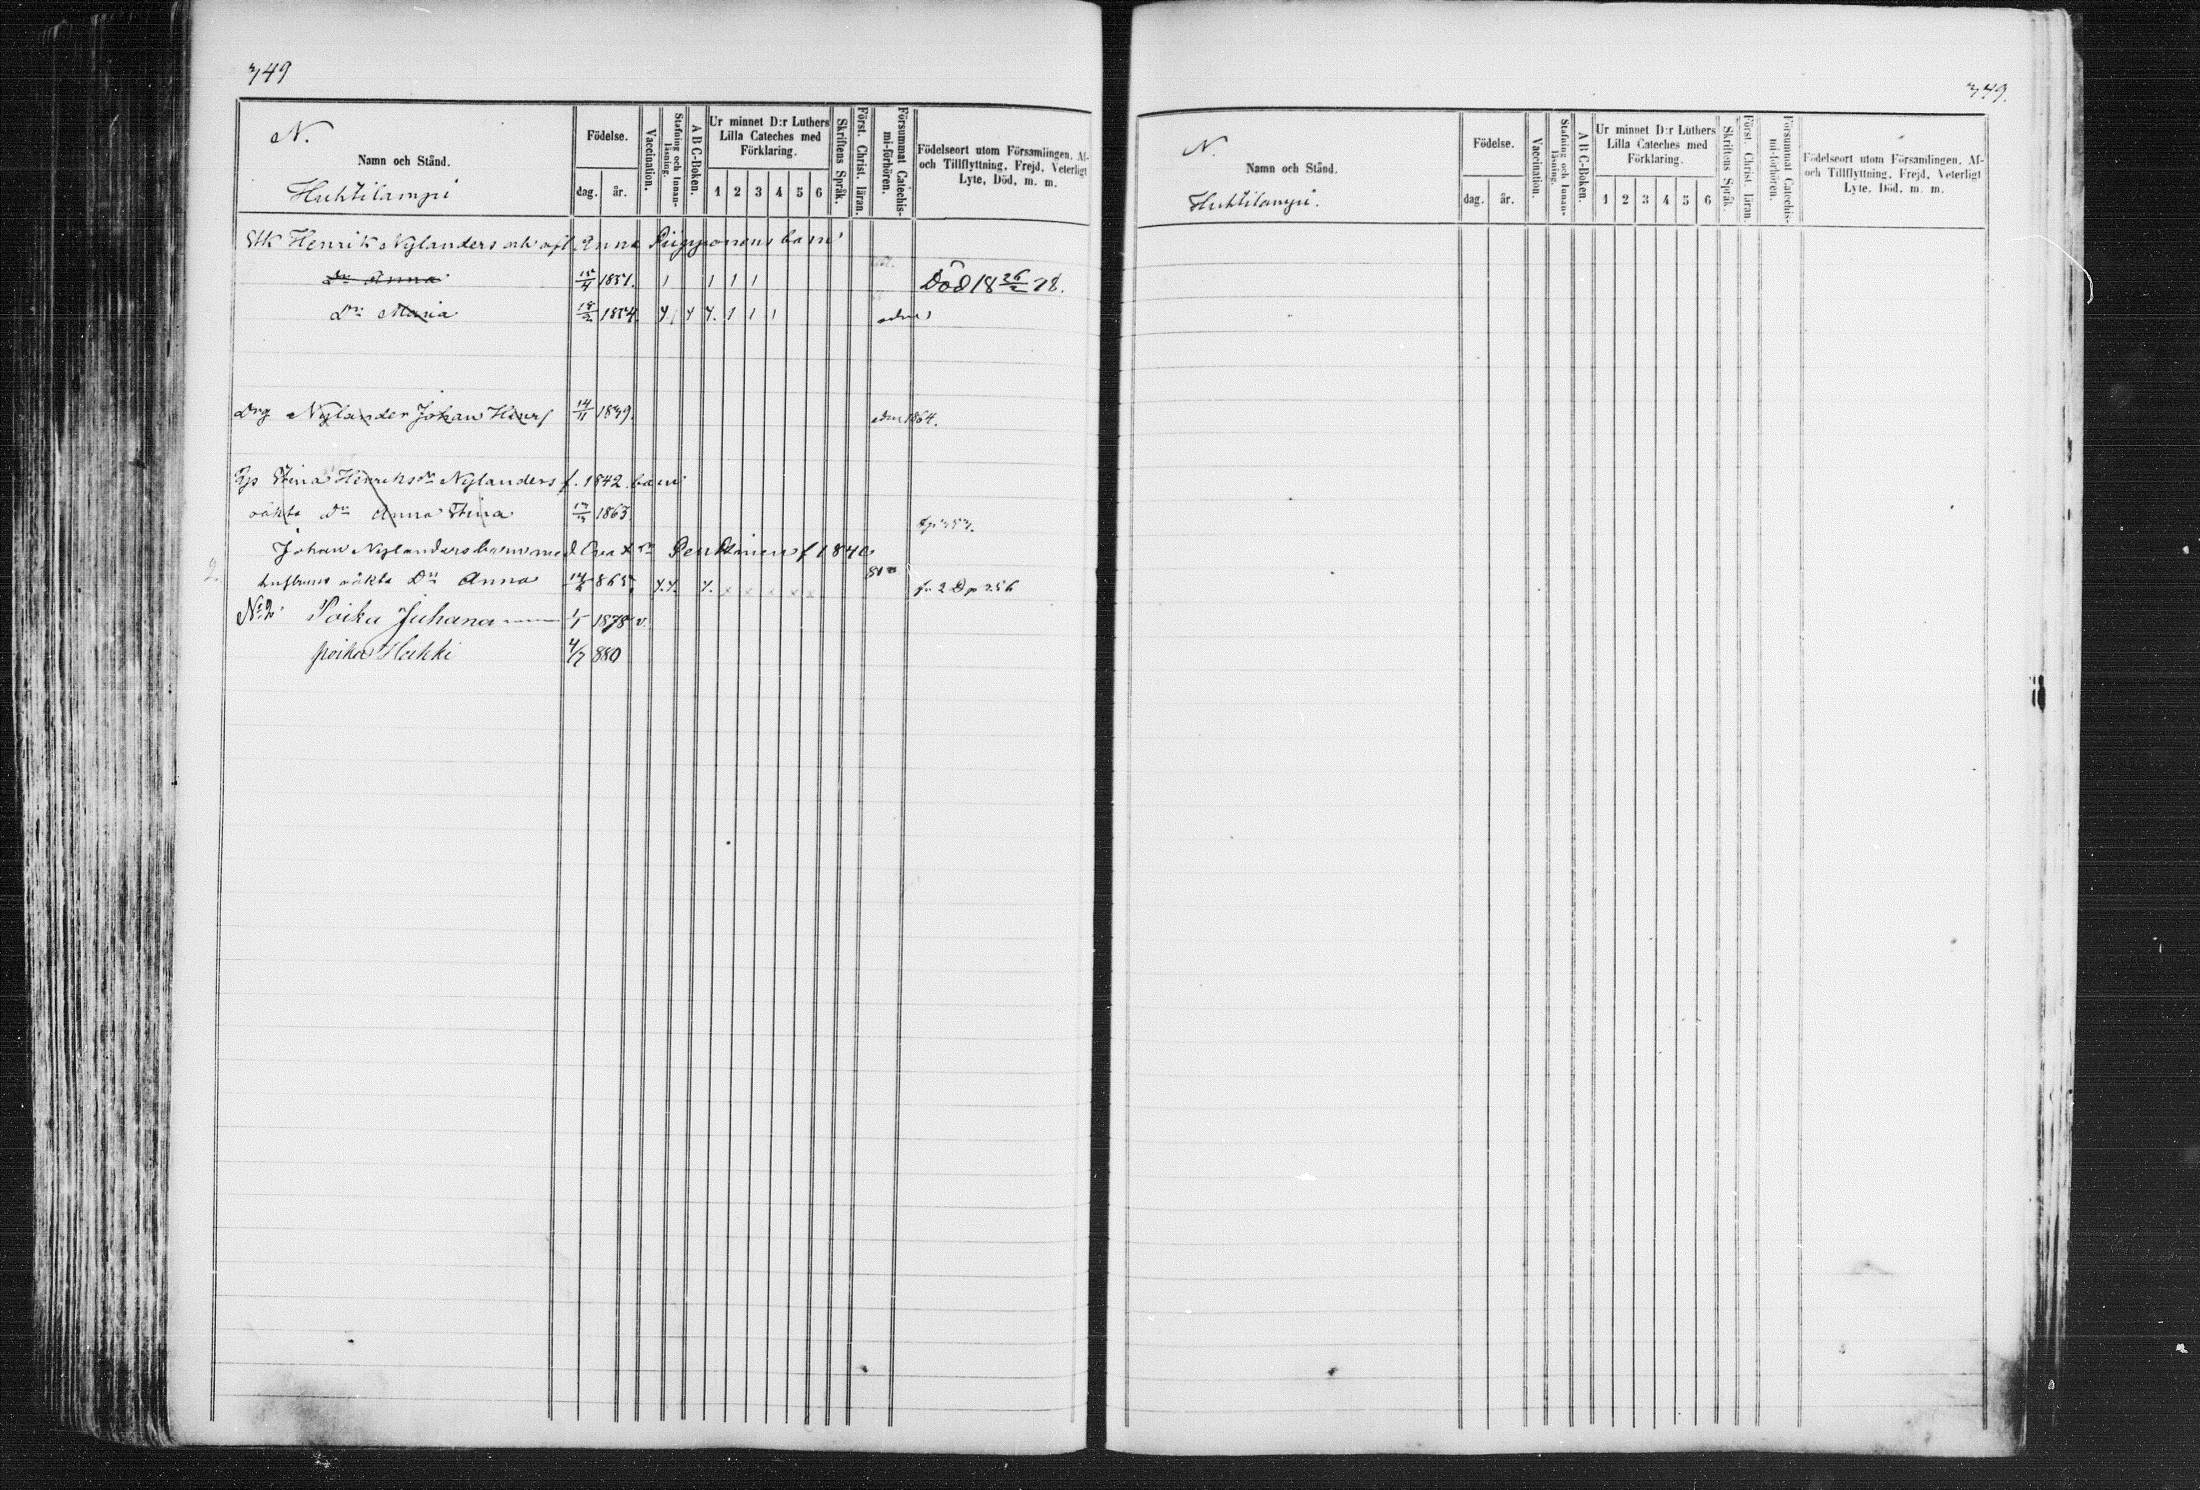 349
N.
Namn och Stånd.
Huhtilampi
Födelse.
dag. år.
Vaccination.
Stafning och Innan-läsning.
A B C-Boken.
Ur minnet D:r Luthers Lilla Cateches med Förklaring.
1 2 3 4 5 6
Skriftens Språk.
Först. Christ. läran.
Försummat Catechis-mi-förhören.
Födelseort utom Församlingen, Af- och Tillflyttning, Frejd, Veterligt Lyte, Död, m. m.
Henrik Nylanders och Anna Piipponens barn
Dr Anna 1851. 1 1 1 1 Död 18 26/2 78.
Dr Maria 1854.
Drg Nylander Johan Henr 14/11 1839. adm 1864.
Stina Henriksdr Nylanders f. 1842 barn
oäkta Dr Anna Stina 1863.
Johan Nylanders barn med Eva Penttinen f 1840
hustruns oäkta Dr Anna 865.
No 2 Poika Juhana 1/1 1878 v.
poika Heikki 4/7 880
349.
N.
Namn och Stånd.
Huhtilampi.
Födelse.
dag. år.
Vaccination.
Stafning och Innan-läsning.
A B C-Boken.
Ur minnet D:r Luthers Lilla Cateches med Förklaring.
1 2 3 4 5 6
Skriftens Språk.
Först. Christ. läran.
Försummat Catechis-mi-förhören.
Födelseort utom Församlingen, Af- och Tillflyttning, Frejd, Veterligt Lyte, Död, m. m.